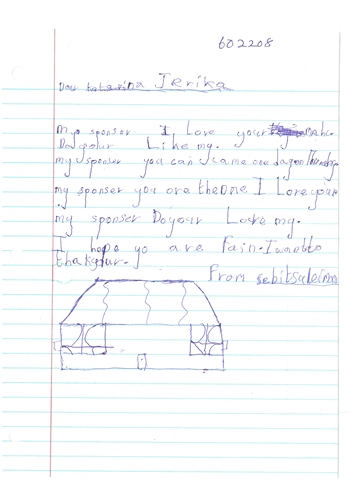 602208
Dear katarina Jerika
My sponsor I Love your
Do your Like my.
my sponser you can came one day on
my sponser you ora the one I Love your
my sponser Do your Love my.
I hope yo are fain. I want to
thak your.
From sebitsuleiman